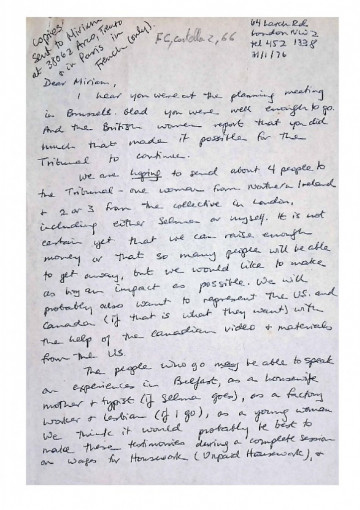 Copies
sent to Miriam
at 38062 Arco, Trento
+ in Paris in
French (only).
FG, cartella 2, 66
64 Larch Rd.
London NW2
tel 452 1338
7/1/76
Dear Miriam,
I hear you were at the planning meeting
in Brussels. Glad you were well enough to go.
And the British women report that you did
much that made it possible for the
Tribunal to continue.
We are hoping to send about 4 people to
the Tribunal - one woman from Northern Ireland
+ 2 or 3 from the collective in London,
including either Selma or myself. It is not
certain yet that we can raise enough
money or that so many people will be able
to get away, but we would like to make
as big an impact as possible. We will
probably also want to represent the US. and
Canada (if that is what they want) with
the help of the Canadian video + materials
from the US.
The people who go may be able to speak
on experiences in Belfast, as a housewife
mother + typist (if Selma goes), as a factory
worker + lesbian (if I go), as a young woman
We think it would probably be best to
make these testimonies during a complete session
on Wages for Housework (Unpaid Housework), +